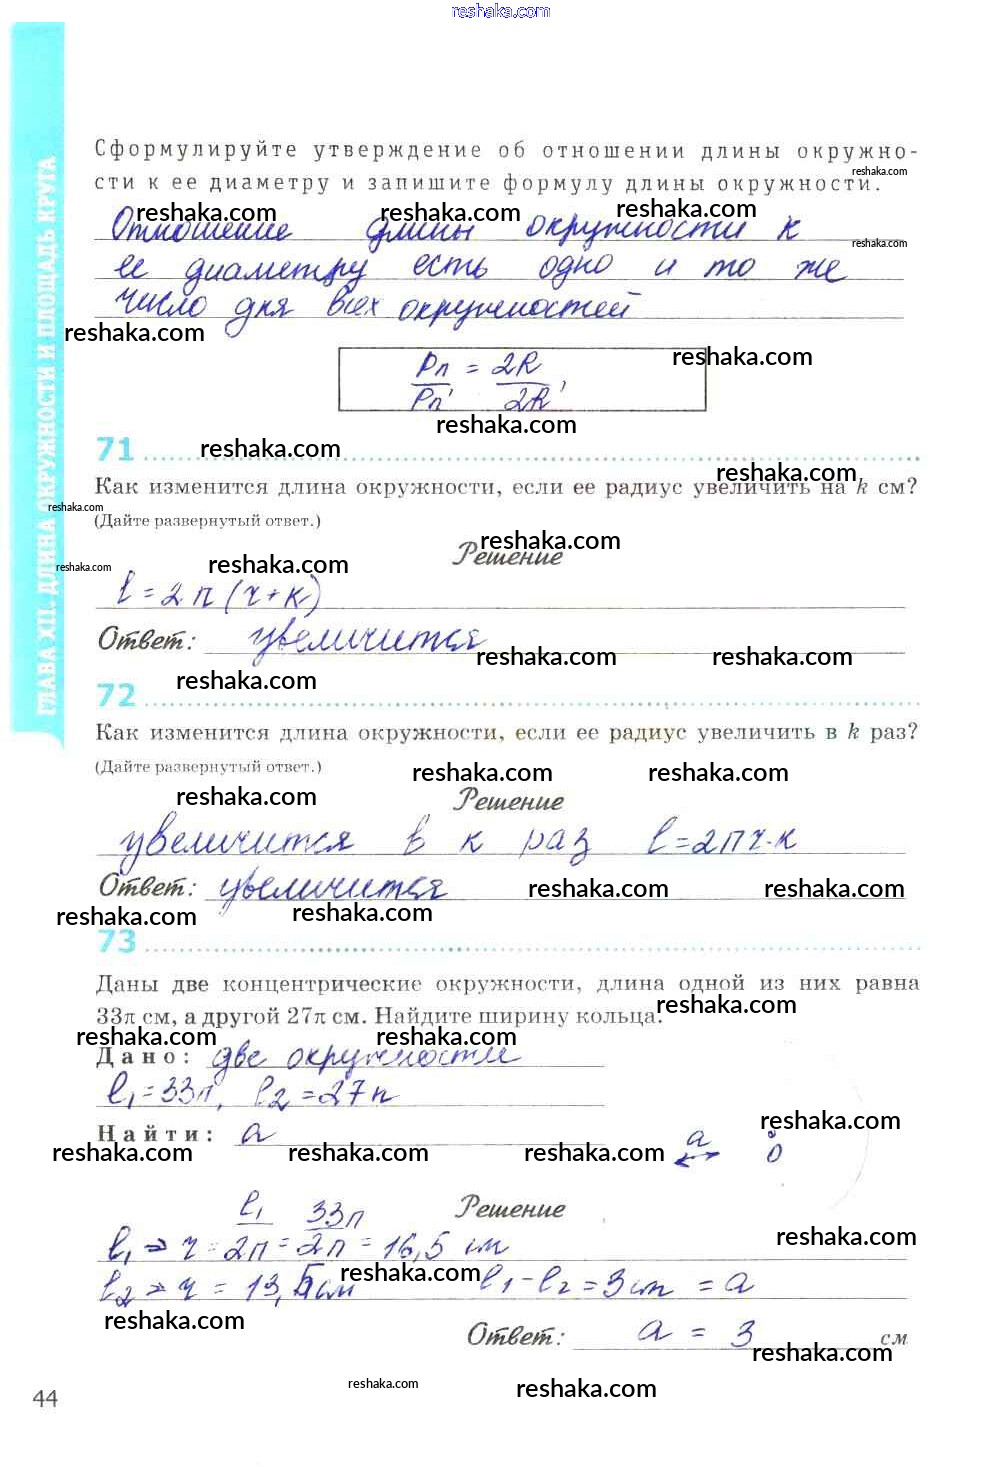 reshaka.com
ГЛАВА XII. ДЛИНА ОКРУЖНОСТИ И ПЛОЩАДЬ КРУГА
Сформулируйте утверждение об отношении длины окружно-
reshaka.com
сти к ее диаметру и запишите формулу длины окружности.
reshaka.com reshaka.com reshaka.com
Отношение длины окружности к
reshaka.com
ее диаметру есть одно и то же
число для всех окружностей
reshaka.com
reshaka.com
Pn/Pn' = 2R/2R'
reshaka.com
71 reshaka.com
reshaka.com
Как изменится длина окружности, если ее радиус увеличить на k см?
reshaka.com
(Дайте развернутый ответ.)
reshaka.com
Решение
reshaka.com reshaka.com
l = 2π(r+к)
Ответ: увеличится
reshaka.com reshaka.com
reshaka.com
72
Как изменится длина окружности, если ее радиус увеличить в k раз?
(Дайте развернутый ответ.)
reshaka.com reshaka.com
reshaka.com
Решение
увеличится в к раз l=2πr·к
Ответ: увеличится
reshaka.com reshaka.com
reshaka.com reshaka.com
73
Даны две концентрические окружности, длина одной из них равна
reshaka.com
33π см, а другой 27π см. Найдите ширину кольца.
reshaka.com reshaka.com reshaka.com
Дано: две окружности
l₁=33π, l₂=27π
reshaka.com
Найти: a
a 0
reshaka.com reshaka.com reshaka.com
Решение
l₁ → r = l₁/2π = 33π/2π = 16,5 см
reshaka.com
reshaka.com
l₂ → r = 13,5см l₁-l₂=3см = a
reshaka.com
Ответ: a = 3 см
reshaka.com
reshaka.com reshaka.com
44